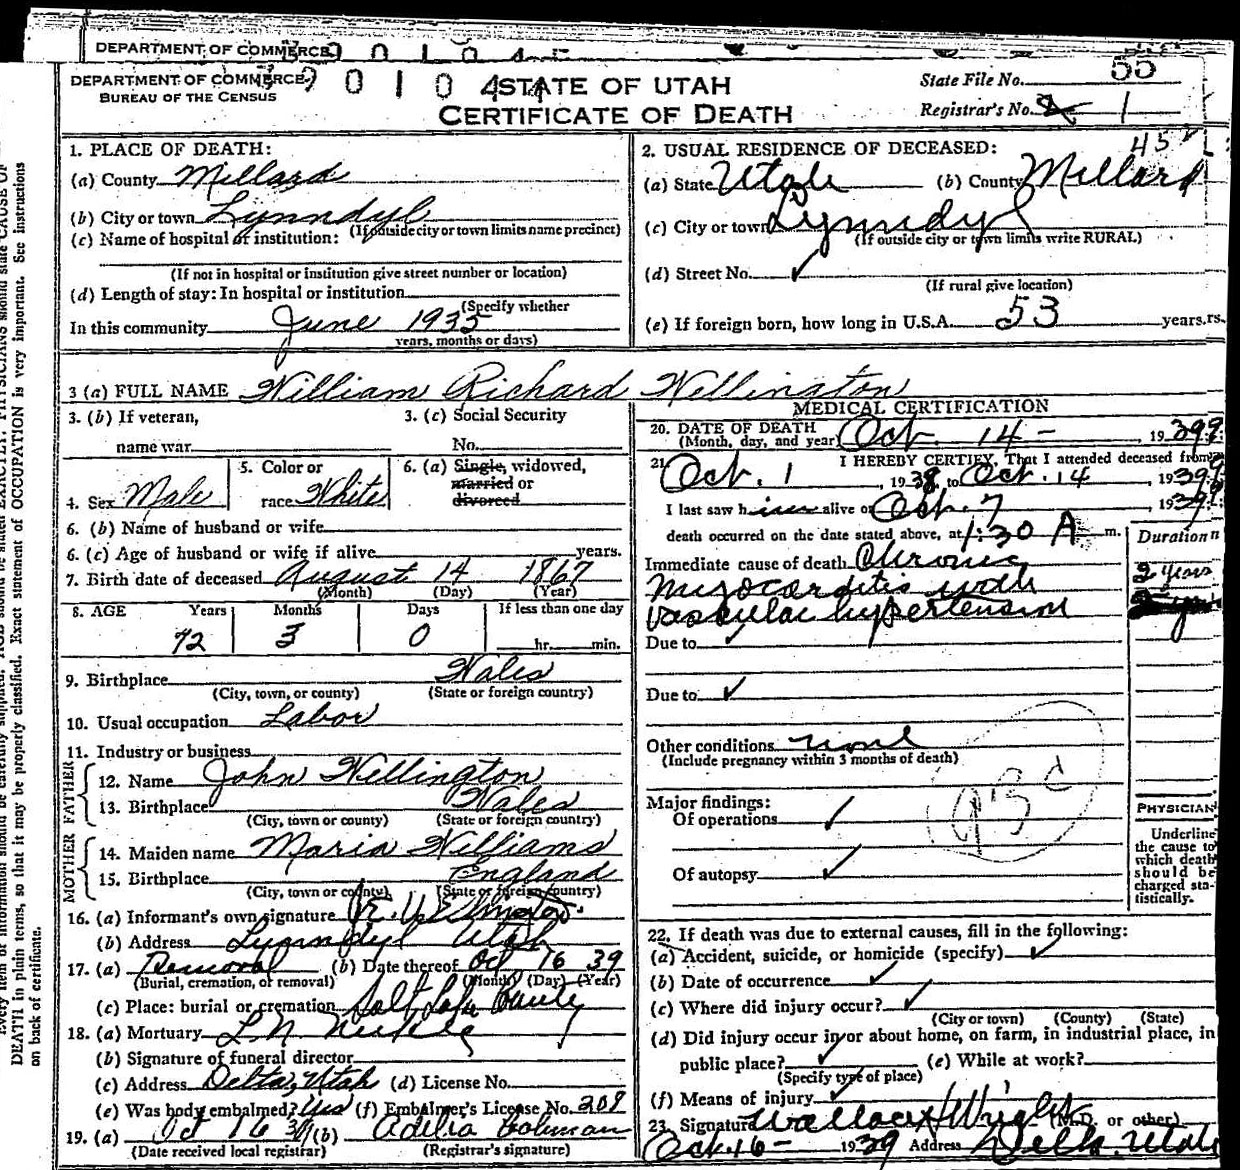 DEPARTMENT OF COMMERCE
DEPARTMENT OF COMMERCE
BUREAU OF THE CENSUS
STATE OF UTAH
CERTIFICATE OF DEATH
State File No. 55
Registrar's No. 1
1. PLACE OF DEATH:
(a) County Millard
(b) City or town Lynndyl
(If outside city or town limits name precinct)
(c) Name of hospital or institution:
(If not in hospital or institution give street number or location)
(d) Length of stay: In hospital or institution
(Specify whether
In this community June 1935
years, months or days)
2. USUAL RESIDENCE OF DECEASED:
45
(a) State Utah (b) County Millard
(c) City or town Lynndyl
(If outside city or town limits write RURAL)
(d) Street No. ✓
(If rural give location)
(e) If foreign born, how long in U.S.A. 53 years.
3 (a) FULL NAME William Richard Wellington
3. (b) If veteran,
name war
3. (c) Social Security
No.
4. Sex Male
5. Color or
race White
6. (a) Single, widowed,
married or
divorced
6. (b) Name of husband or wife
6. (c) Age of husband or wife if alive years.
7. Birth date of deceased August 14 1867
(Month) (Day) (Year)
8. AGE Years Months Days If less than one day
72 3 0 hr. min.
9. Birthplace Wales
(City, town, or county) (State or foreign country)
10. Usual occupation Labor
11. Industry or business
FATHER
12. Name John Wellington
13. Birthplace Wales
(City, town or county) (State or foreign country)
MOTHER
14. Maiden name Maria Williams
15. Birthplace England
(City, town or county) (State or foreign country)
16. (a) Informant's own signature
(b) Address Lynndyl Utah
17. (a) Removal (b) Date thereof Oct 16 39
(Burial, cremation, or removal) (Month) (Day) (Year)
(c) Place: burial or cremation Salt Lake County
18. (a) Mortuary
(b) Signature of funeral director
(c) Address Delta, Utah (d) License No.
(e) Was body embalmed? Yes (f) Embalmer's License No. 209
19. (a) Oct 16 39 (b) Adelia
(Date received local registrar) (Registrar's signature)
MEDICAL CERTIFICATION
20. DATE OF DEATH
(Month, day, and year) Oct. 14 - , 1939
21. I HEREBY CERTIFY, That I attended deceased from
Oct. 1 , 1938, to Oct. 14 , 1939
I last saw him alive on Oct. 7 , 1939
death occurred on the date stated above, at 1:30 A m.
Duration
Immediate cause of death Chronic
myocarditis with 2 years
vascular hypertension
Due to ✓
Due to ✓
Other conditions none
(Include pregnancy within 3 months of death)
93c
Major findings:
Of operations ✓
Of autopsy ✓
PHYSICIAN
Underline
the cause to
which death
should be
charged sta-
tistically.
22. If death was due to external causes, fill in the following:
(a) Accident, suicide, or homicide (specify) ✓
(b) Date of occurrence ✓
(c) Where did injury occur? ✓
(City or town) (County) (State)
(d) Did injury occur in or about home, on farm, in industrial place, in
public place? ✓ (e) While at work?
(Specify type of place)
(f) Means of injury ✓
23. Signature (M.D. or other)
Oct. 16 - 1939 Address Delta, Utah
DEATH in plain terms, so that it may be properly classified. Exact statement of OCCUPATION is very important. See instructions
on back of certificate.